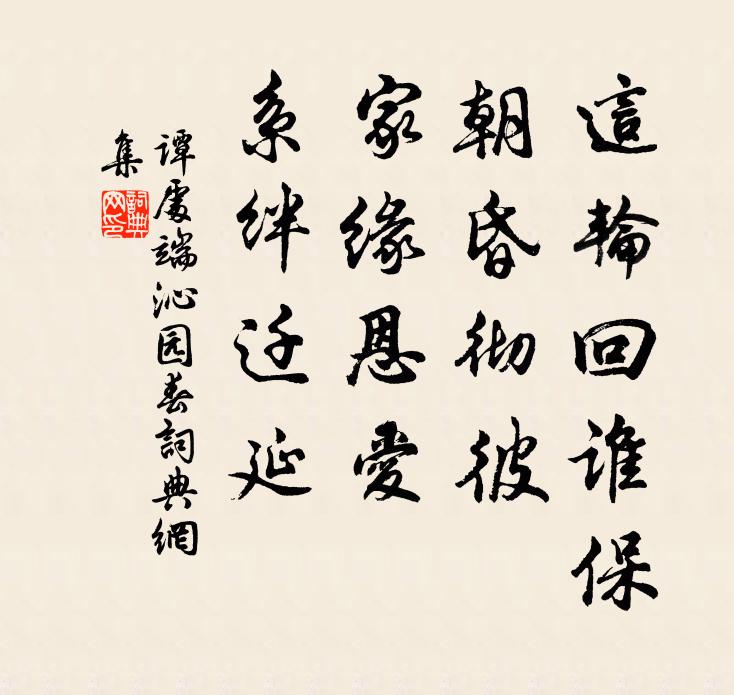 這輪回誰保
朝昏彻彼
家緣恩愛
系絆迁延
譚處端沁园春詞典網
集
詞典网印